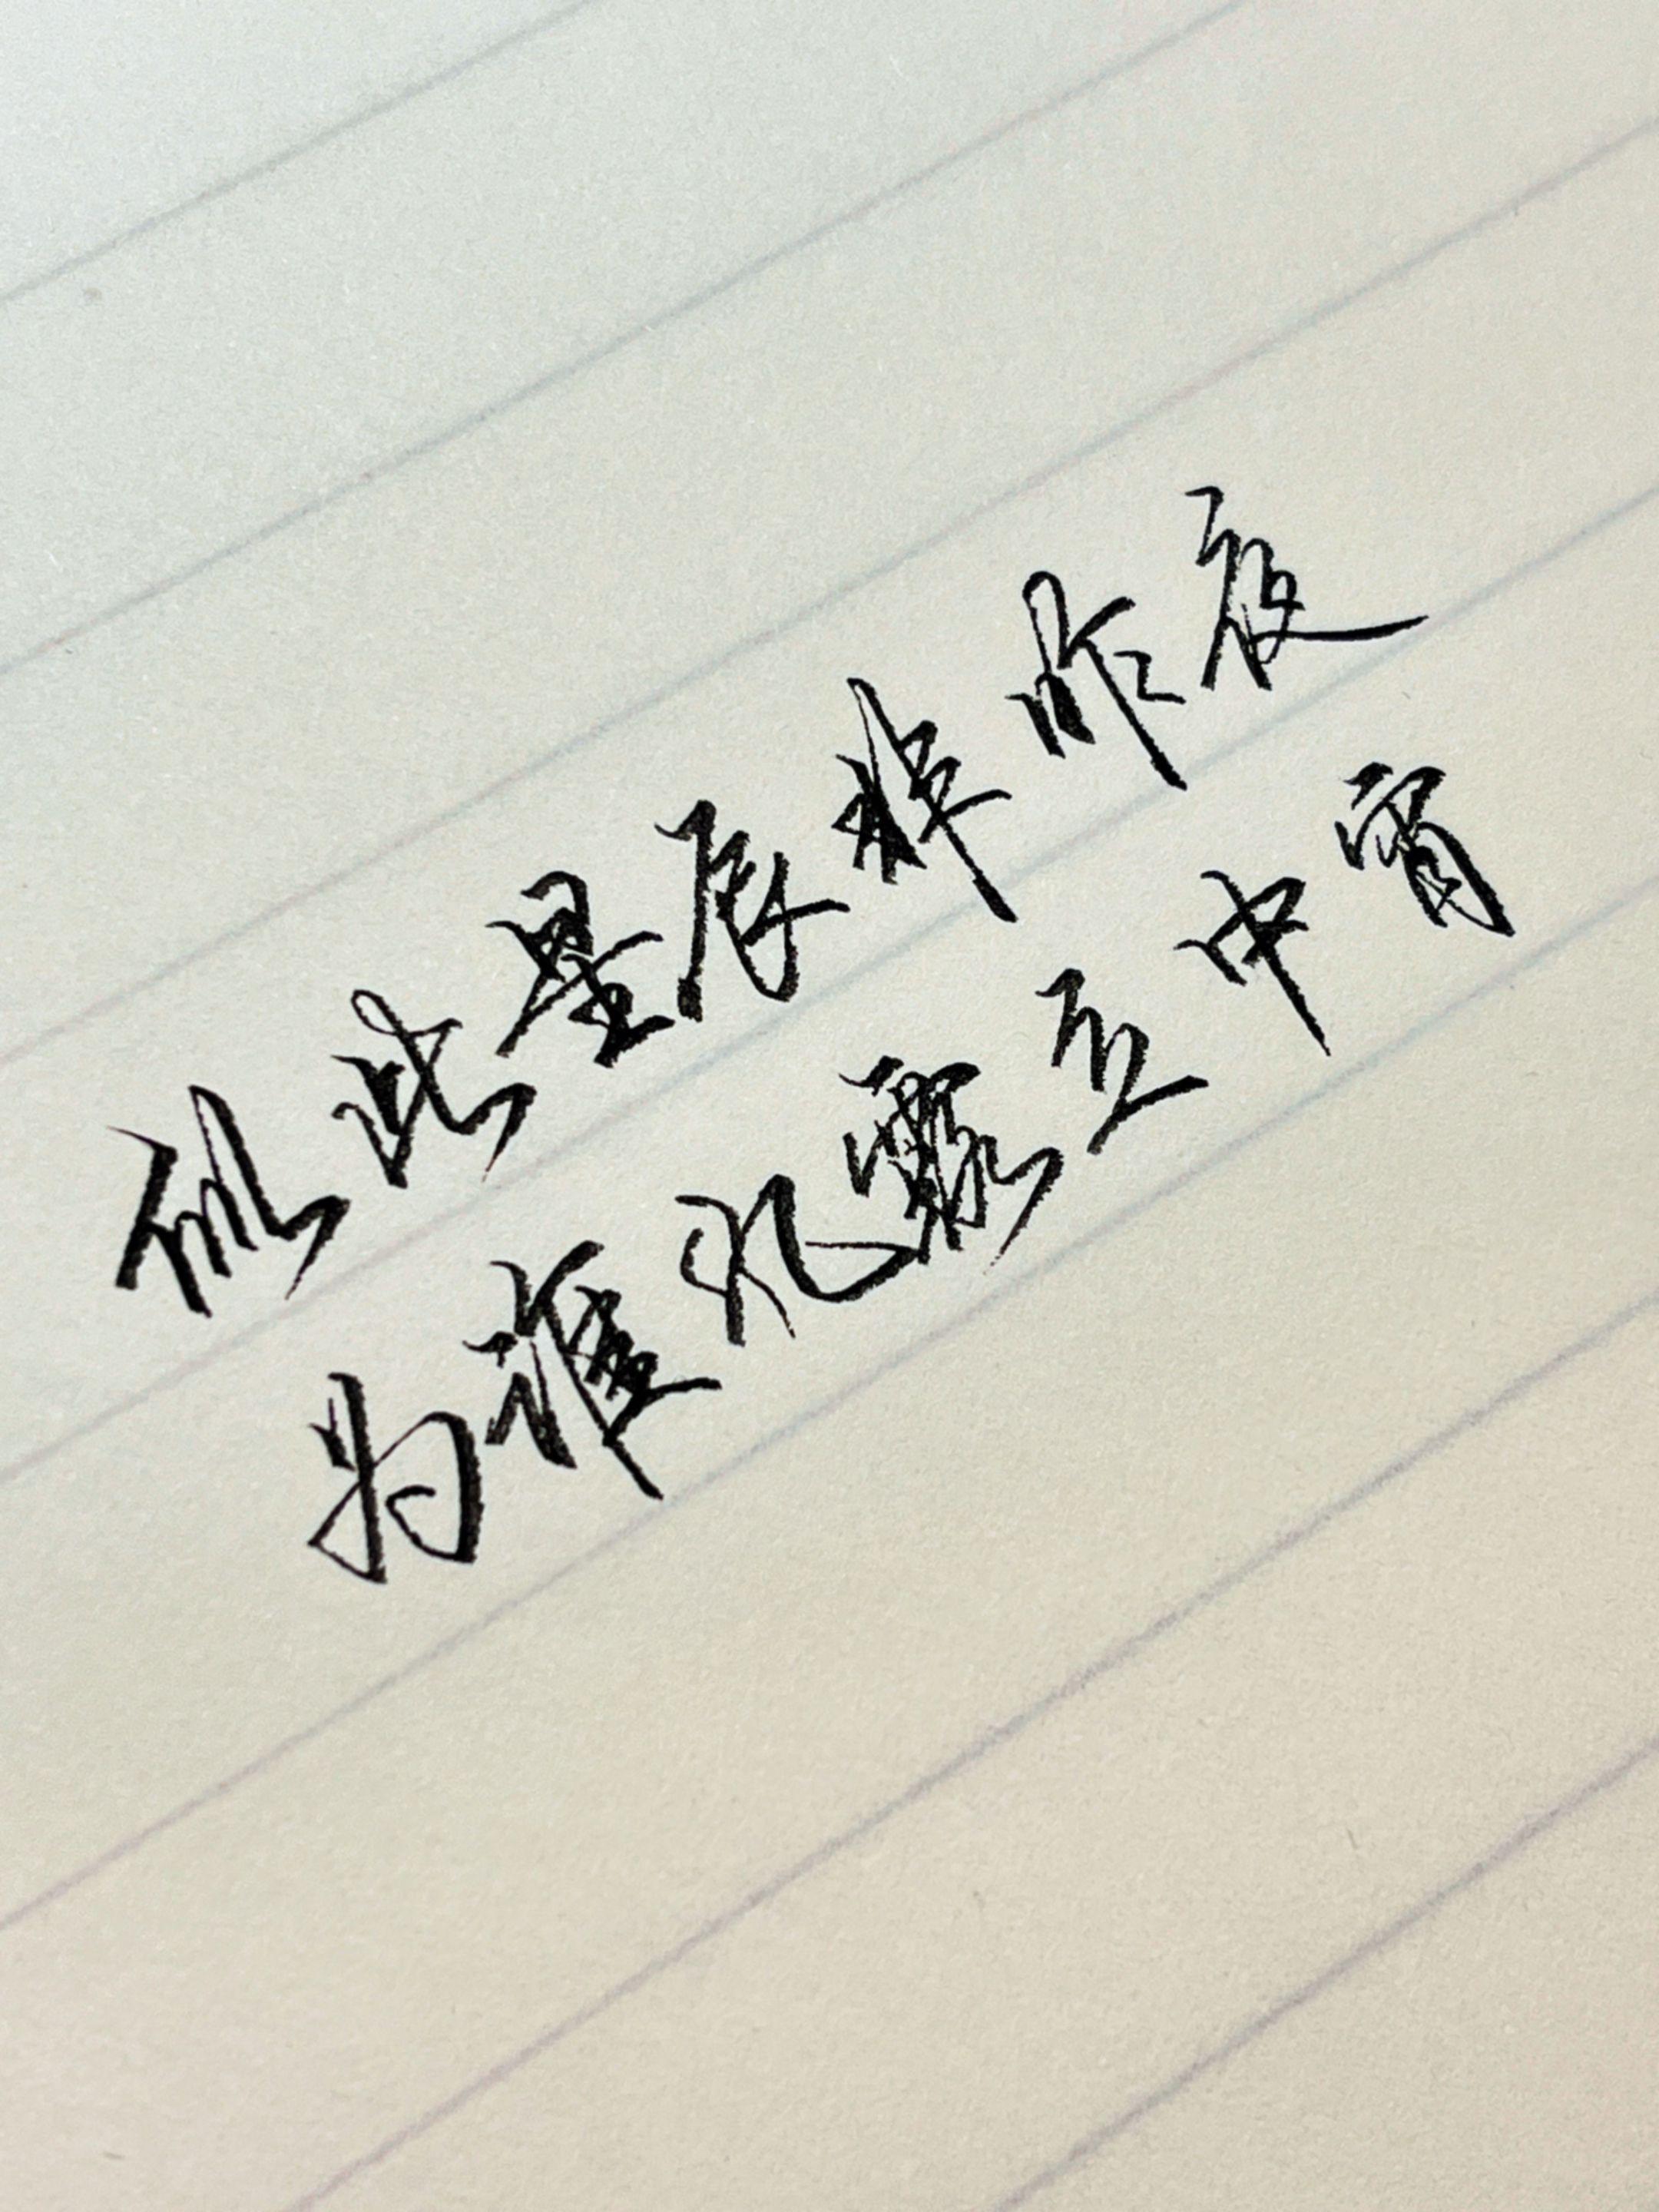 似此星辰非昨夜
为谁风露立中宵